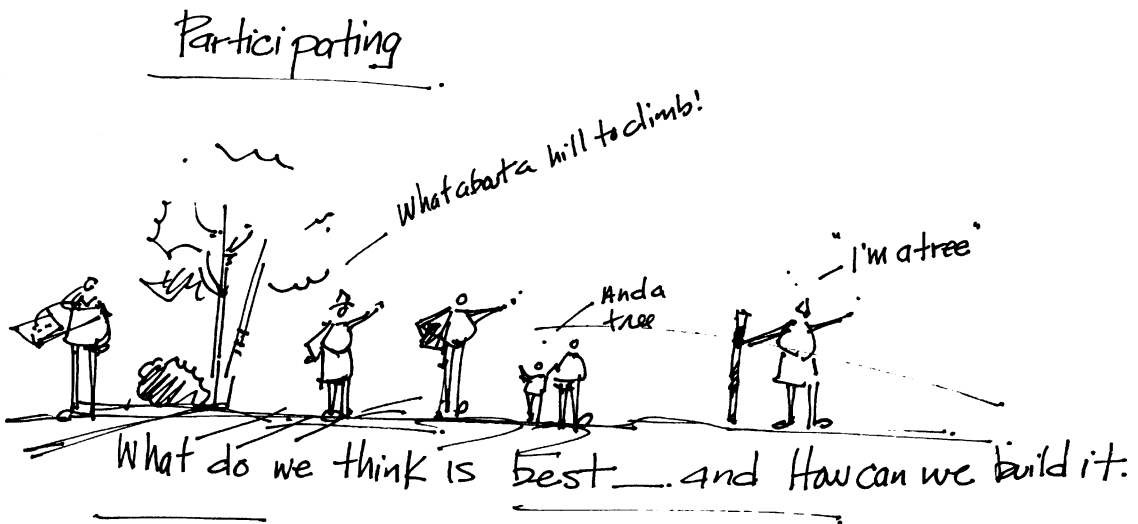 Participating
What about a hill to climb!
"I'm a tree"
And a
tree
What do we think is best __. and How can we build it.